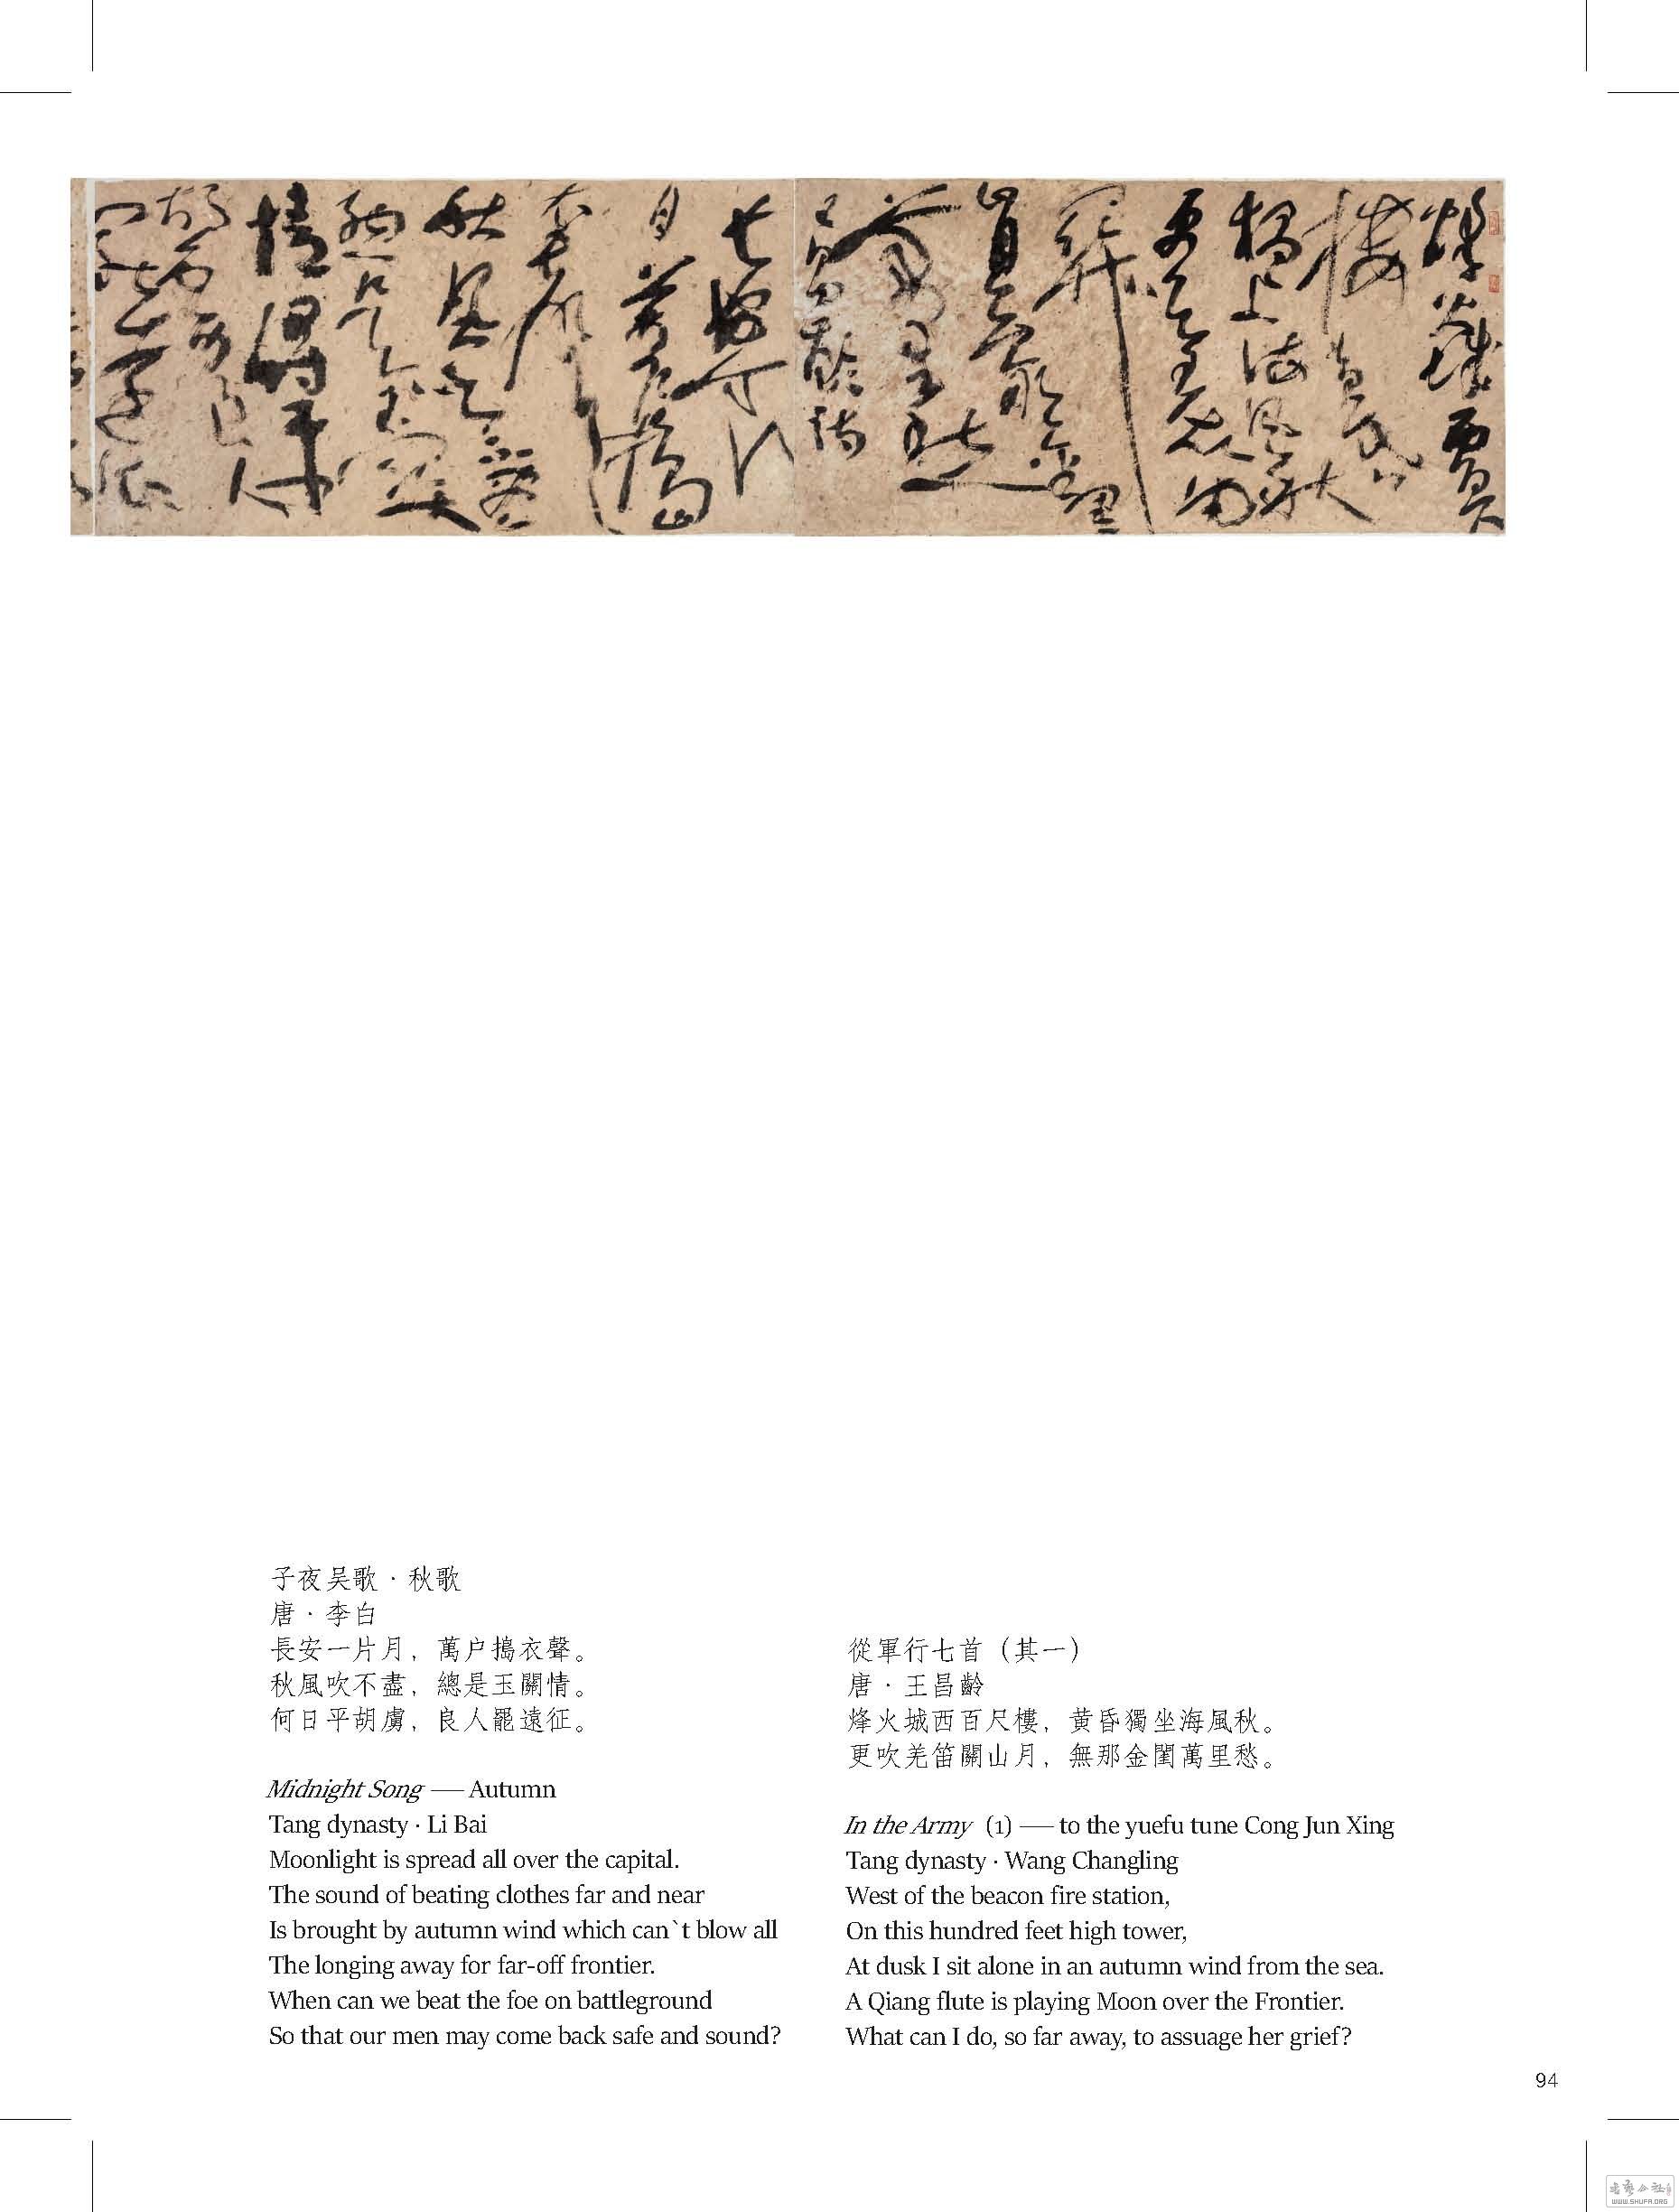 烽火城西百尺
樓黄昏
獨上海風秋
更吹羌笛
關
山月無那金閨
萬里愁
王昌齡詩
長安一片
月萬户搗
衣聲
秋風吹不盡
總是玉關
情何日平
胡虜良人
子夜吴歌·秋歌
唐·李白
長安一片月，萬户搗衣聲。
秋風吹不盡，總是玉關情。
何日平胡虜，良人罷遠征。
Midnight Song — Autumn
Tang dynasty · Li Bai
Moonlight is spread all over the capital.
The sound of beating clothes far and near
Is brought by autumn wind which can`t blow all
The longing away for far-off frontier.
When can we beat the foe on battleground
So that our men may come back safe and sound?
從軍行七首（其一）
唐·王昌齡
烽火城西百尺樓，黄昏獨坐海風秋。
更吹羌笛關山月，無那金閨萬里愁。
In the Army (1) — to the yuefu tune Cong Jun Xing
Tang dynasty · Wang Changling
West of the beacon fire station,
On this hundred feet high tower,
At dusk I sit alone in an autumn wind from the sea.
A Qiang flute is playing Moon over the Frontier.
What can I do, so far away, to assuage her grief?
94
WWW.SHUFA.ORG